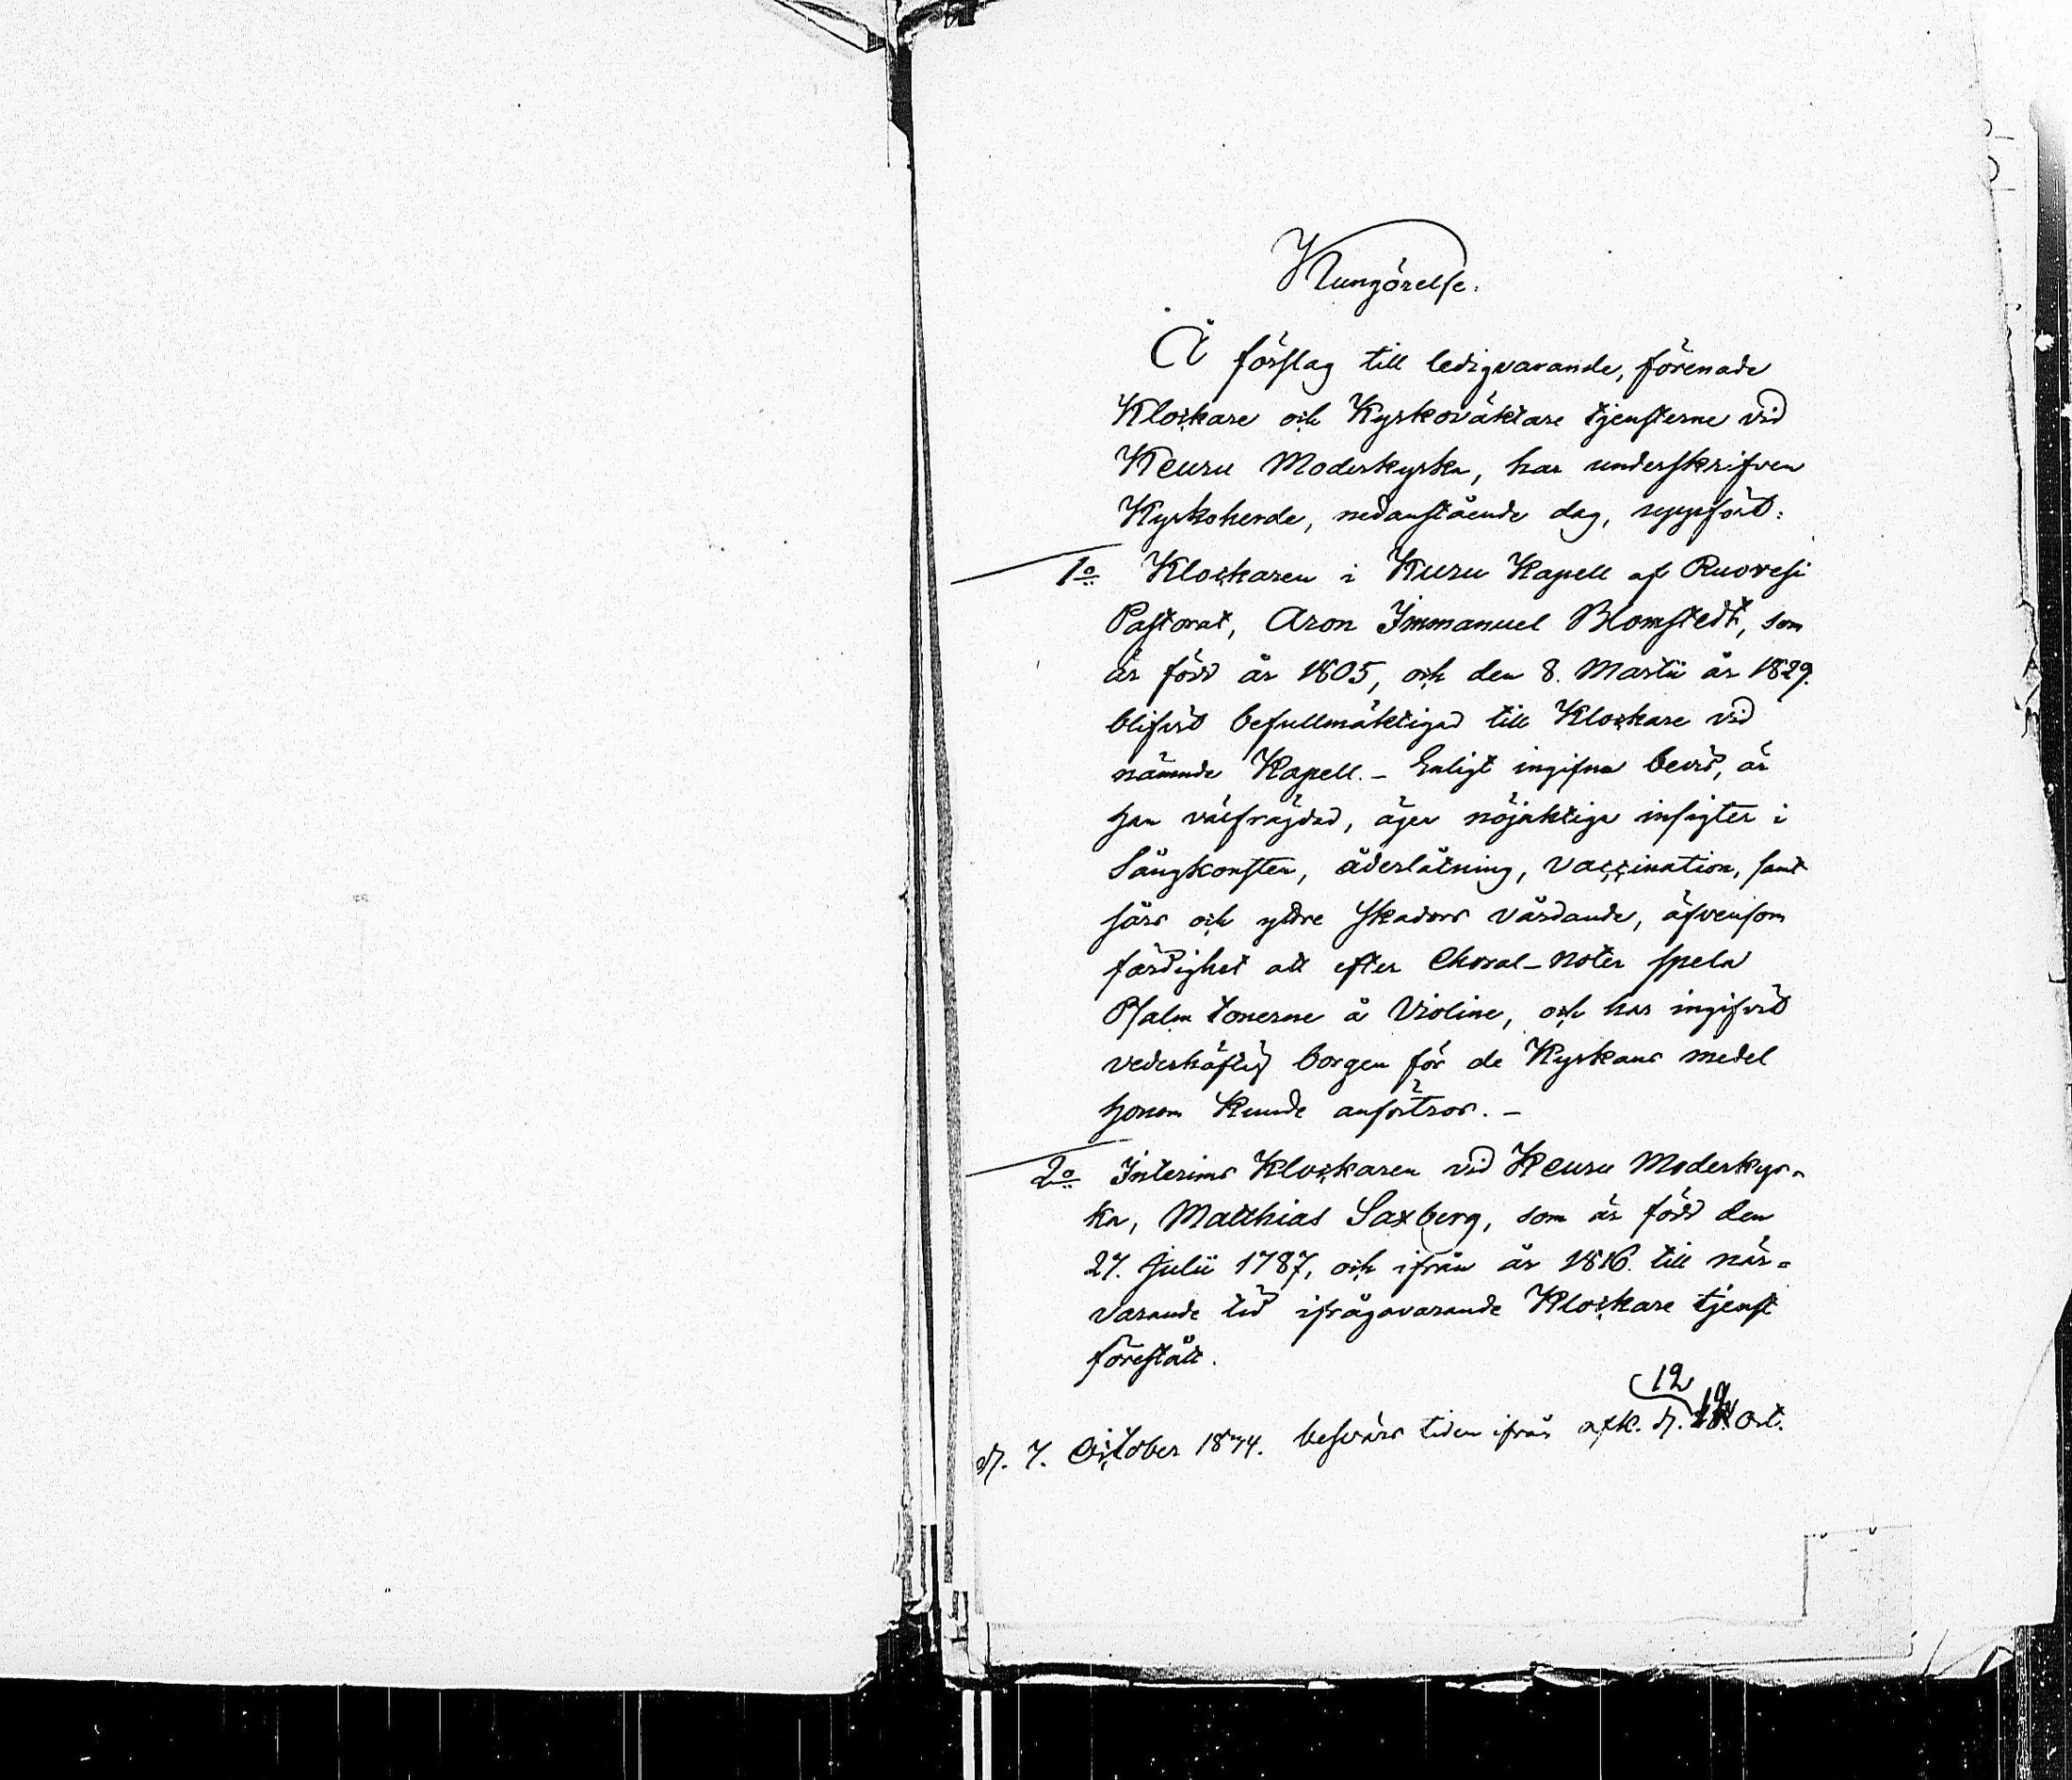 Kungörelse.
Å förslag till ledigvarande, förenade
Klockare och Kyrkoväktare tjensterne vid
Keuru Moderkyrka, har underskrifven
Kyrkoherde, nedanstående dag, uppfört:
1o Klockaren i Kuru Kapell af Ruovesi
Pastorat, Aron Immanuel Blomstedt, som
är född år 1805, och den 8. Martii år 1829.
blifvit befullmäktigad till Klockare vid
nämnde Kapell. – Enligt ingifna bevis, är
han välfrägdad, äger nöjaktiga insigter i
Sångkonsten, åderlåtning, vaccination, samt
sårs och yttre skadors vårdande, äfvensom
färdighet att efter Choral-noter spela
Psalm tonerne å Violine, och har ingifvit
vederhäftig borgen för de Kyrkans medel
honom kunde anförtros. –
2o Interims Klockaren vid Keuru Moderkyr-
ka, Matthias Saxberg, som är född den
27. Julii 1787, och ifrån år 1816. till när-
varande tid ifrågavarande Klockare tjenst
förestått.
12
d. 7. October 1844. besvärs tiden ifrån d. 19 Oct.